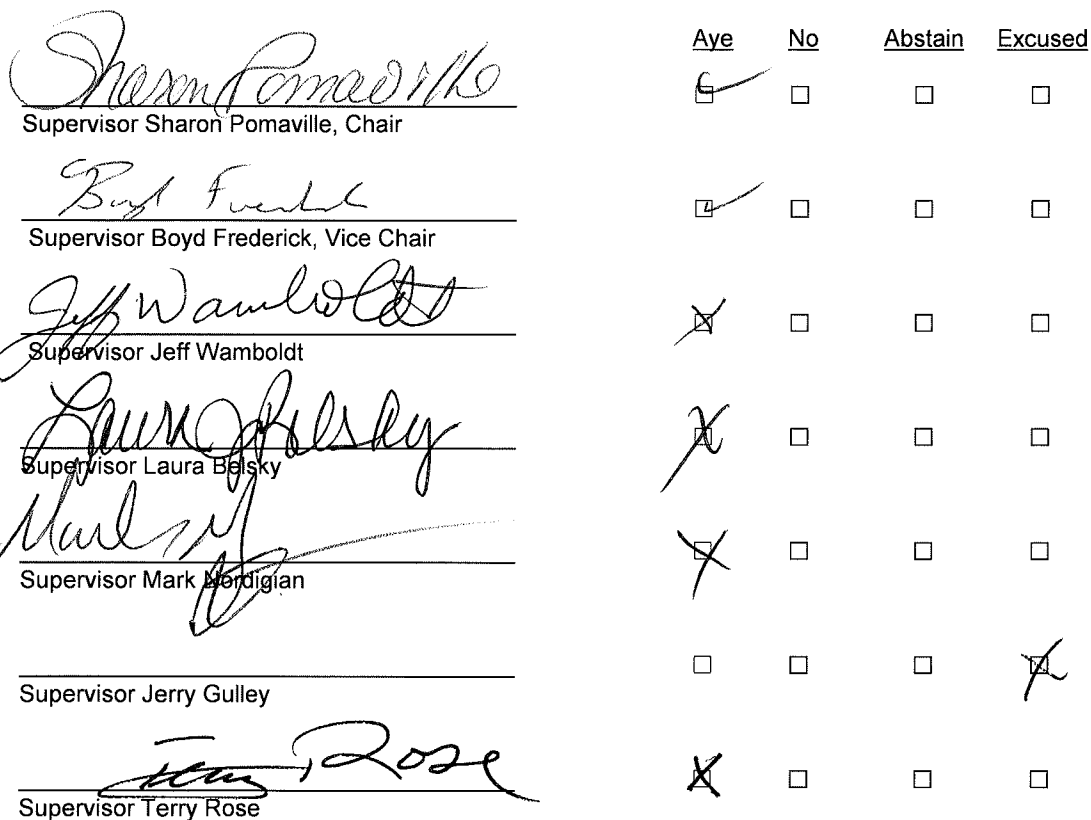 Aye No Abstain Excused
Sharon Pomaville
Supervisor Sharon Pomaville, Chair
Boyd Frederick
Supervisor Boyd Frederick, Vice Chair
Jeff Wamboldt
Supervisor Jeff Wamboldt
Laura J Belsky
Supervisor Laura Belsky
Mark
Supervisor Mark Nordigian
Supervisor Jerry Gulley
Terry Rose
Supervisor Terry Rose